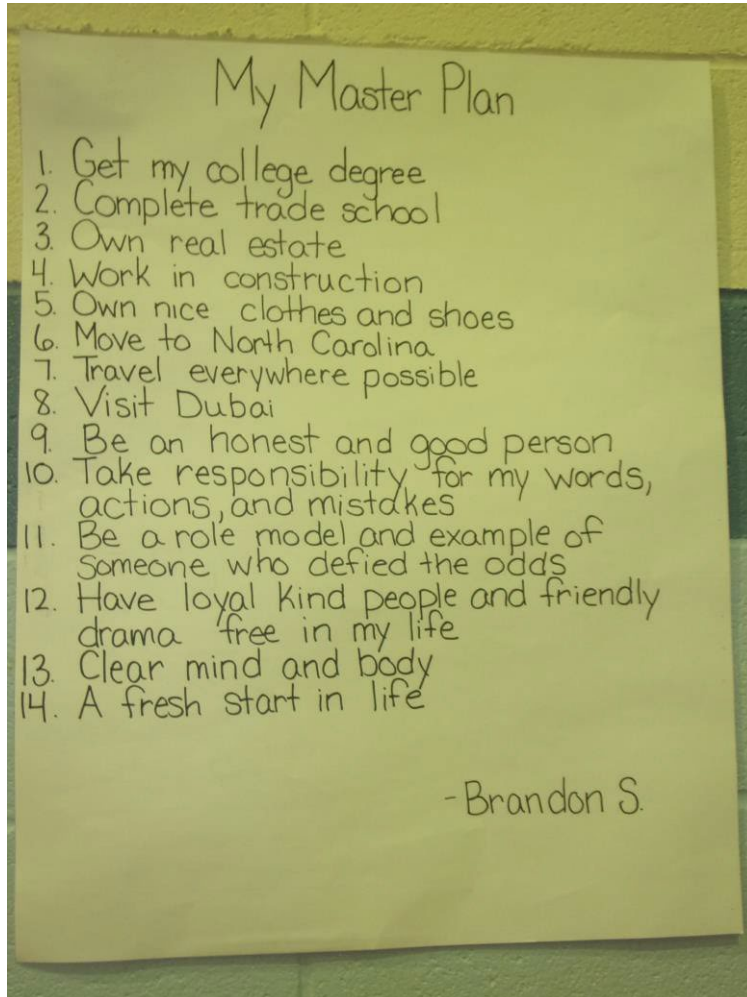 My Master Plan
1. Get my college degree
2. Complete trade school
3. Own real estate
4. Work in construction
5. Own nice clothes and shoes
6. Move to North Carolina
7. Travel everywhere possible
8. Visit Dubai
9. Be an honest and good person
10. Take responsibility for my words,
actions, and mistakes
11. Be a role model and example of
someone who defied the odds
12. Have loyal kind people and friendly
drama free in my life
13. Clear mind and body
14. A fresh start in life
-Brandon S.